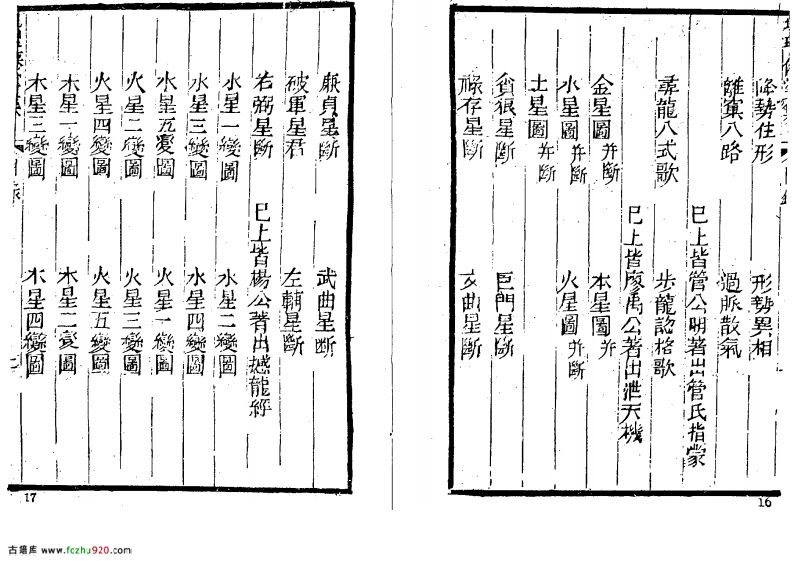 降勢住形 形勢異相
離窠八路 過脈散氣
已上皆管公明著出管氏指蒙
尋龍八式歌 步龍認格歌
已上皆廖禹公著出泄天機
金星圖并斷 木星圖并斷
水星圖并斷 火星圖并斷
土星圖并斷
貪狼星斷 巨門星斷
祿存星斷 文曲星斷
16
廉貞星斷 武曲星斷
破軍星君 左輔星斷
右弼星斷
已上皆楊公著出撼龍經
水星一變圖 水星二變圖
水星三變圖 水星四變圖
水星五變圖 火星一變圖
火星二變圖 火星三變圖
火星四變圖 火星五變圖
木星一變圖 木星二變圖
木星三變圖 木星四變圖
17
古籍库 www.fczhu920.com